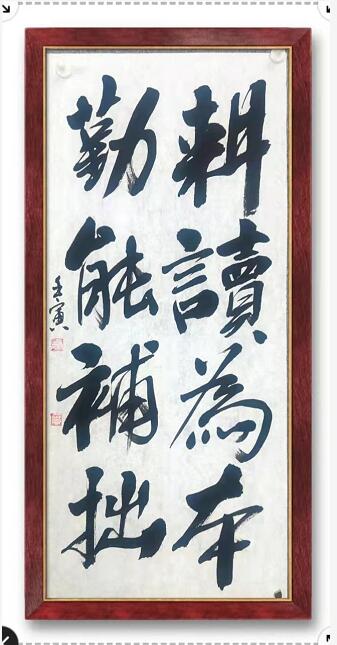 耕讀為本
勤能補拙
壬寅